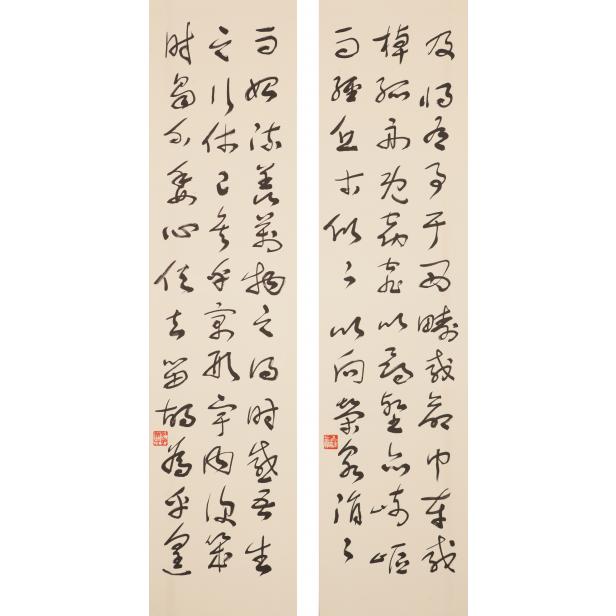 及將有事于西疇或命巾車或
棹孤舟既窈窕以尋壑亦崎嶇
而經丘木欣々以向榮泉涓々
而始流羨萬物之得時感吾生
之行休已矣乎寓形宇內復幾
時曷不委心任去留胡為乎遑